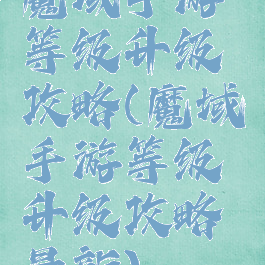 魔域手游
等级升级
攻略(魔域
手游等级
升级攻略
最新)